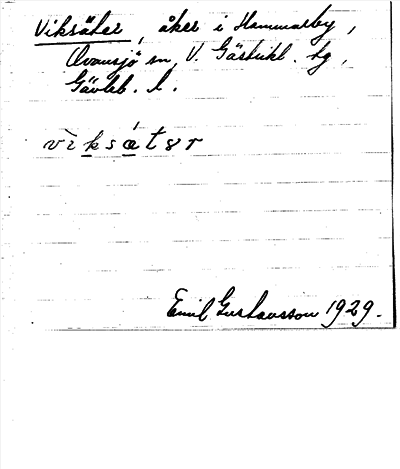 Viksäter, åker i Hammarby,
Ovansjö sn, V. Gästrikl. tg,
Gävleb. l.
viksätər
Emil Gustavsson 1929.